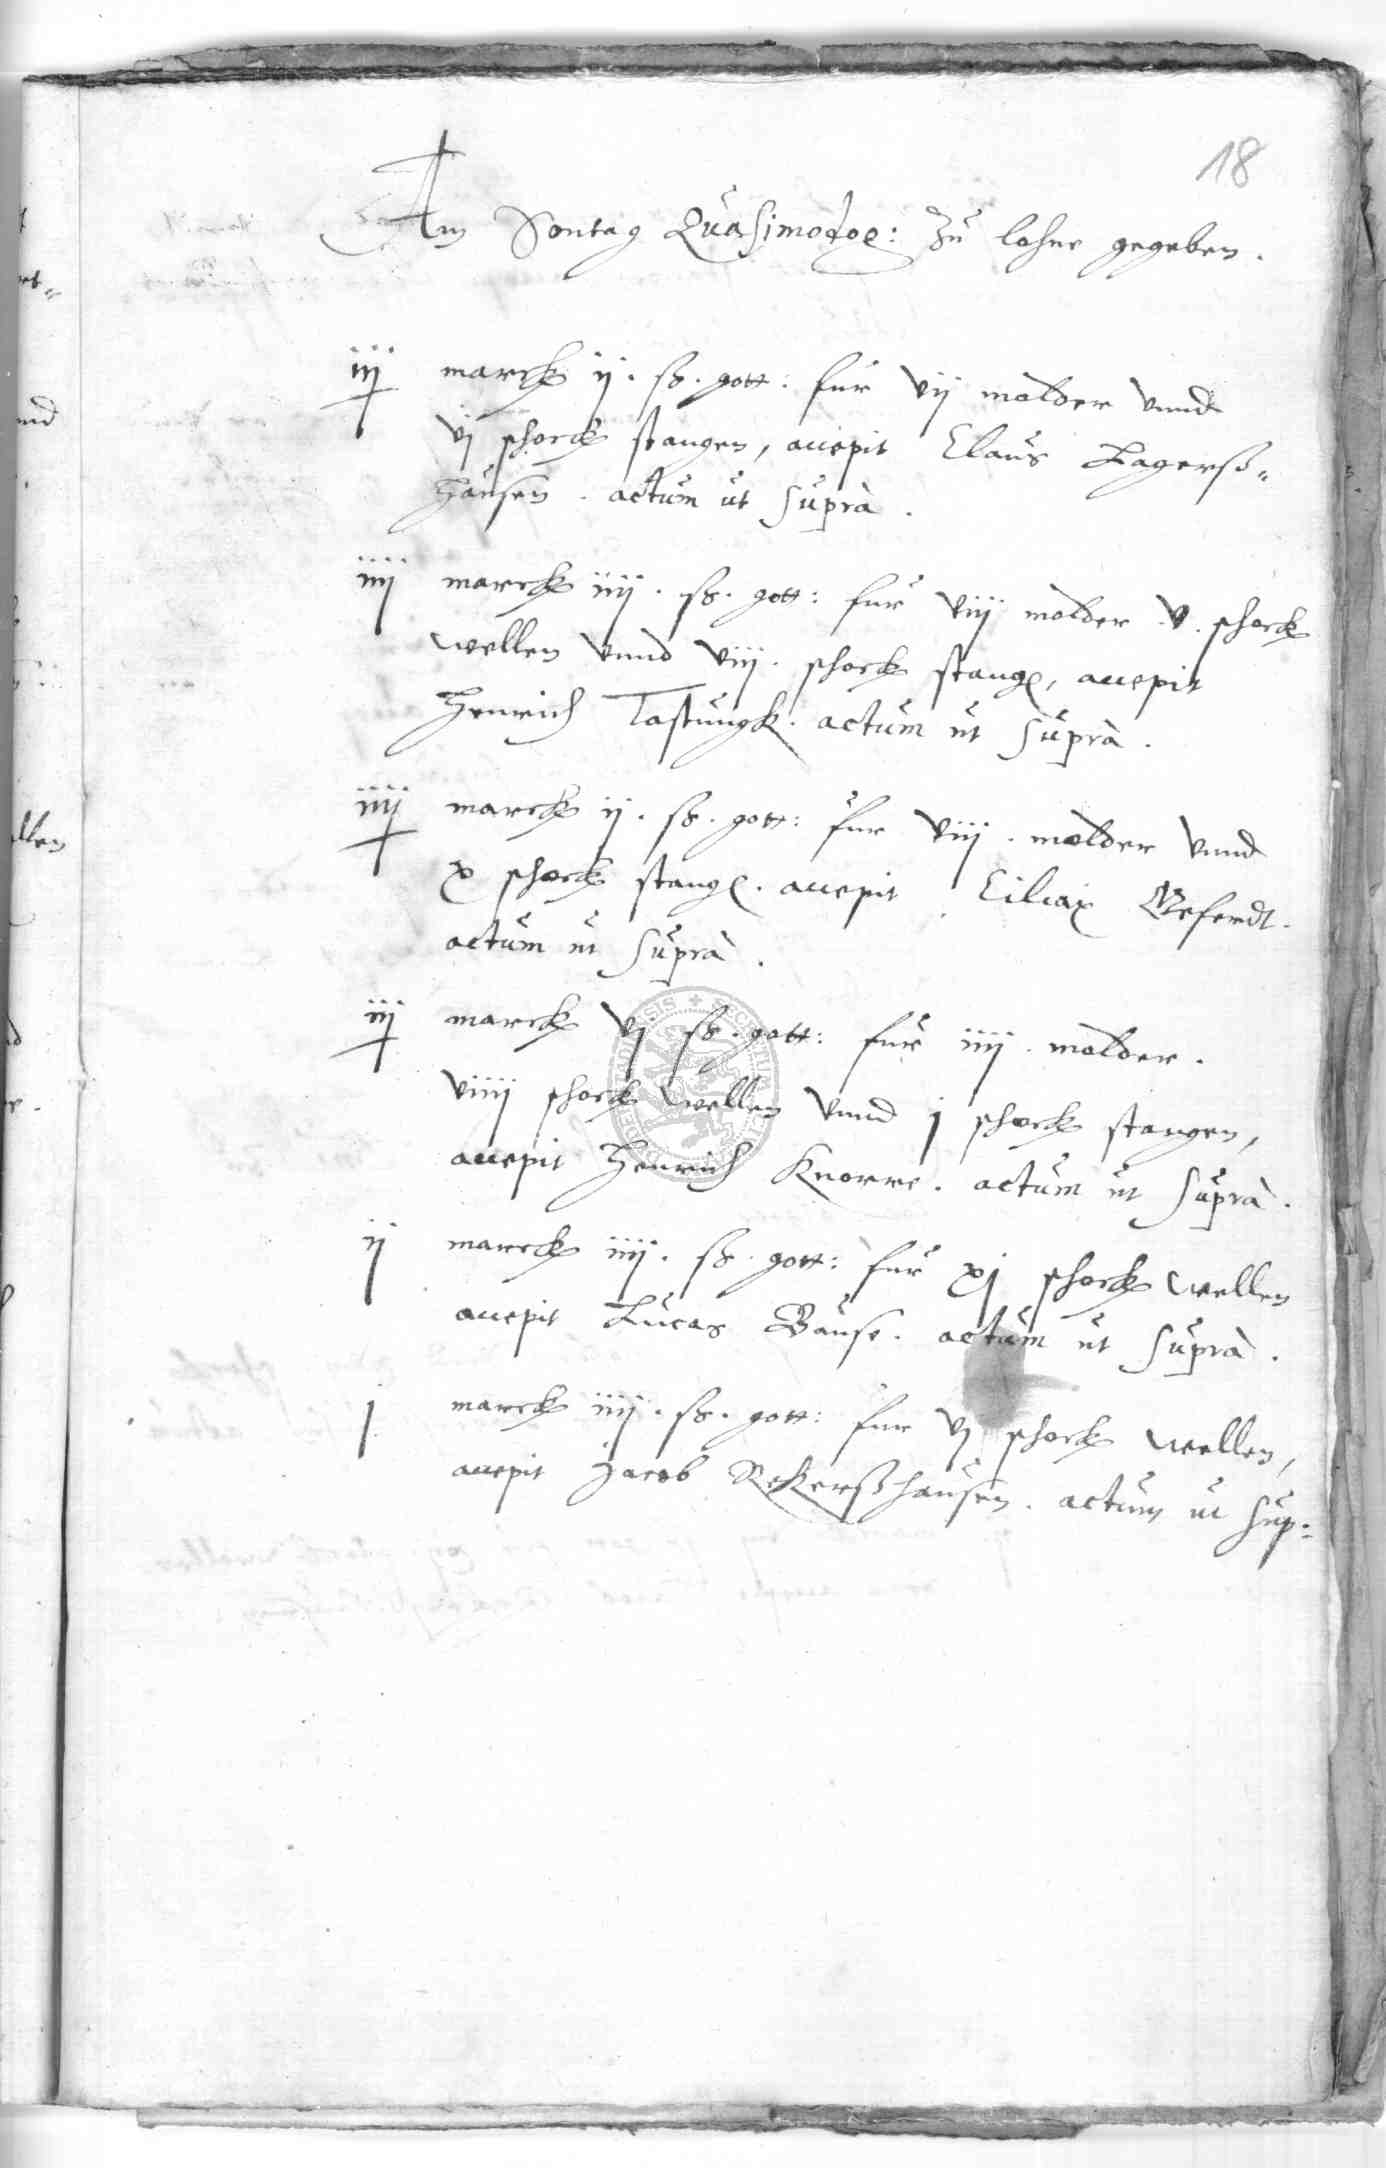 18
Am Sontag Quasimodoe: Zu lohne gegeben.
iij marck ij. ß. gott: fur vij molder vnnd
vj schock stangen, accepit Claus Lagerß-
hausen. actum ut suprà.
iiij marck iiij. ß. gott: fur viij molder v. schock
wellen vnnd viij. schock stang, accepit
Henrich Tastungk. actum ut suprà.
iiij marck ij. ß. gott: fur viij. molder vnnd
x schock stang. accepit Ciliax Geferdt.
actum ut suprà.
iij marck vj ß. gott: fur iiij. molder.
viiij schock wellen vnnd j schock stangen,
accepit Henrich Knorre. actum ut suprà.
ij marck iiij. ß. gott: fur xj schock wellen
accepit Lucas Bause. actum ut suprà.
j marck iiij. ß. gott: fur vj schock wellen,
accepit Jacob Rekerßhausen. actum ut sup: